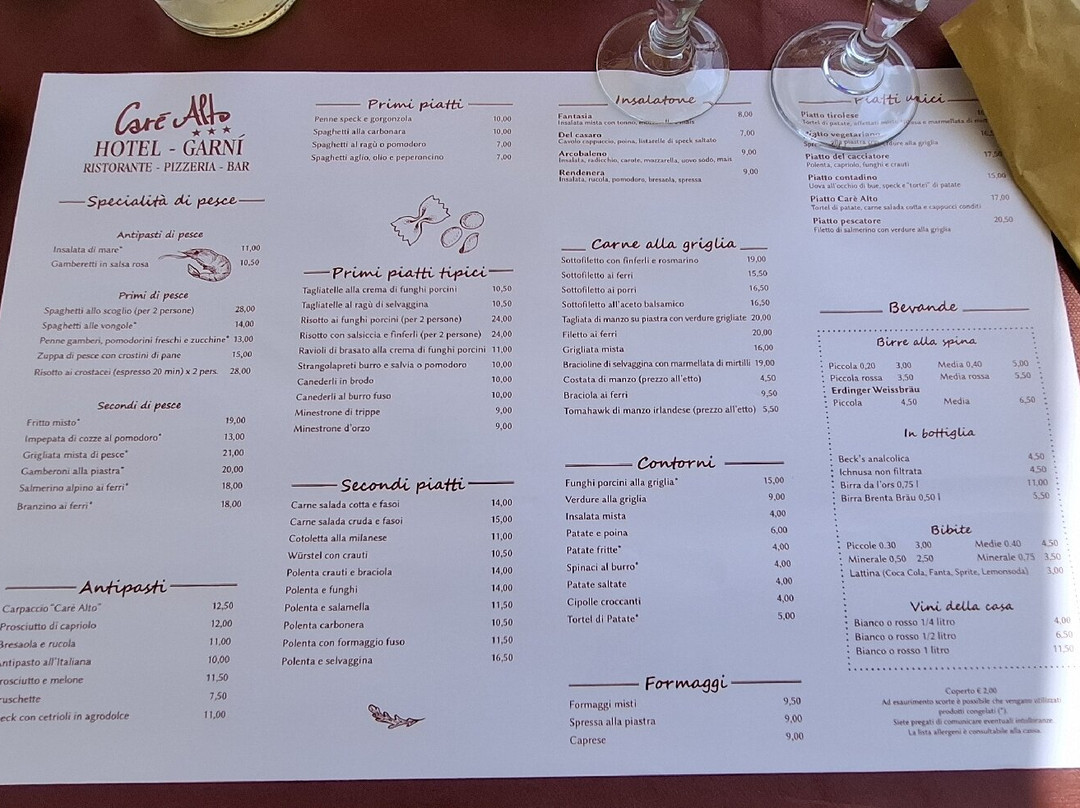 Carè Alto
HOTEL - GARNÍ
RISTORANTE - PIZZERIA - BAR
Specialità di pesce
Antipasti di pesce
Insalata di mare* 11,00
Gamberetti in salsa rosa 10,50
Primi di pesce
Spaghetti allo scoglio (per 2 persone) 28,00
Spaghetti alle vongole* 14,00
Penne gamberi, pomodorini freschi e zucchine* 13,00
Zuppa di pesce con crostini di pane 15,00
Risotto ai crostacei (espresso 20 min) x 2 pers. 28,00
Secondi di pesce
Fritto misto* 19,00
Impepata di cozze al pomodoro* 13,00
Grigliata mista di pesce* 21,00
Gamberoni alla piastra* 20,00
Salmerino alpino ai ferri* 18,00
Branzino ai ferri* 18,00
Antipasti
Carpaccio "Carè Alto" 12,50
Prosciutto di capriolo 12,00
Bresaola e rucola 11,00
ntipasto all'Italiana 10,00
rosciutto e melone 11,50
ruschette 7,50
eck con cetrioli in agrodolce 11,00
Primi piatti
Penne speck e gorgonzola 10,00
Spaghetti alla carbonara 10,00
Spaghetti al ragù o pomodoro 7,00
Spaghetti aglio, olio e peperoncino 7,00
Primi piatti tipici
Tagliatelle alla crema di funghi porcini 10,50
Tagliatelle al ragù di selvaggina 10,50
Risotto ai funghi porcini (per 2 persone) 24,00
Risotto con salsiccia e finferli (per 2 persone) 24,00
Ravioli di brasato alla crema di funghi porcini 11,00
Strangolapreti burro e salvia o pomodoro 10,00
Canederli in brodo 10,00
Canederli al burro fuso 10,00
Minestrone di trippe 9,00
Minestrone d'orzo 9,00
Secondi piatti
Carne salada cotta e fasoi 14,00
Carne salada cruda e fasoi 15,00
Cotoletta alla milanese 11,00
Würstel con crauti 10,50
Polenta crauti e braciola 14,00
Polenta e funghi 14,00
Polenta e salamella 11,50
Polenta carbonera 10,50
Polenta con formaggio fuso 11,50
Polenta e selvaggina 16,50
Insalatone
Fantasia 8,00
Insalata mista con tonno,
Del casaro 7,00
Cavolo cappuccio, poina, listarelle di speck saltato
Arcobaleno 9,00
Insalata, radicchio, carote, mozzarella, uovo sodo, mais
Rendenera 9,00
Insalata, rucola, pomodoro, bresaola, spressa
Carne alla griglia
Sottofiletto con finferli e rosmarino 19,00
Sottofiletto ai ferri 15,50
Sottofiletto ai porri 16,50
Sottofiletto all'aceto balsamico 16,50
Tagliata di manzo su piastra con verdure grigliate 20,00
Filetto ai ferri 20,00
Grigliata mista 16,00
Bracioline di selvaggina con marmellata di mirtilli 19,00
Costata di manzo (prezzo all'etto) 4,50
Braciola ai ferri 9,50
Tomahawk di manzo irlandese (prezzo all'etto) 5,50
Contorni
Funghi porcini alla griglia* 15,00
Verdure alla griglia 9,00
Insalata mista 4,00
Patate e poina 6,00
Patate fritte* 4,00
Spinaci al burro* 4,00
Patate saltate 4,00
Cipolle croccanti 4,00
Tortel di Patate* 5,00
Formaggi
Formaggi misti 9,50
Spressa alla piastra 9,00
Caprese 9,00
Piatti unici
Piatto tirolese
Tortel di patate, affettati e marmellata di
Piatto vegetariano
verdure alla griglia
Piatto del cacciatore 17,50
Polenta, capriolo, funghi e crauti
Piatto contadino 15,00
Uova all'occhio di bue, speck e "tortel" di patate
Piatto Carè Alto 17,00
Tortel di patate, carne salada cotta e cappucci conditi
Piatto pescatore 20,50
Filetto di salmerino con verdure alla griglia
Bevande
Birre alla spina
Piccola 0,20 3,00 Media 0,40 5,00
Piccola rossa 3,50 Media rossa 5,50
Erdinger Weissbräu
Piccola 4,50 Media 6,50
In bottiglia
Beck's analcolica 4,50
Ichnusa non filtrata 4,50
Birra da l'ors 0,75 l 11,00
Birra Brenta Bräu 0,50 l 5,50
Bibite
Piccole 0.30 3,00 Medie 0.40 4,50
Minerale 0,50 2,50 Minerale 0,75 3,50
Lattina (Coca Cola, Fanta, Sprite, Lemonsoda) 3,00
Vini della casa
Bianco o rosso 1/4 litro 4,00
Bianco o rosso 1/2 litro 6,50
Bianco o rosso 1 litro 11,50
Coperto € 2,00
Ad esaurimento scorte è possibile che vengano utilizzati
prodotti congelati (*).
Siete pregati di comunicare eventuali intolleranze.
La lista allergeni è consultabile alla cassa.